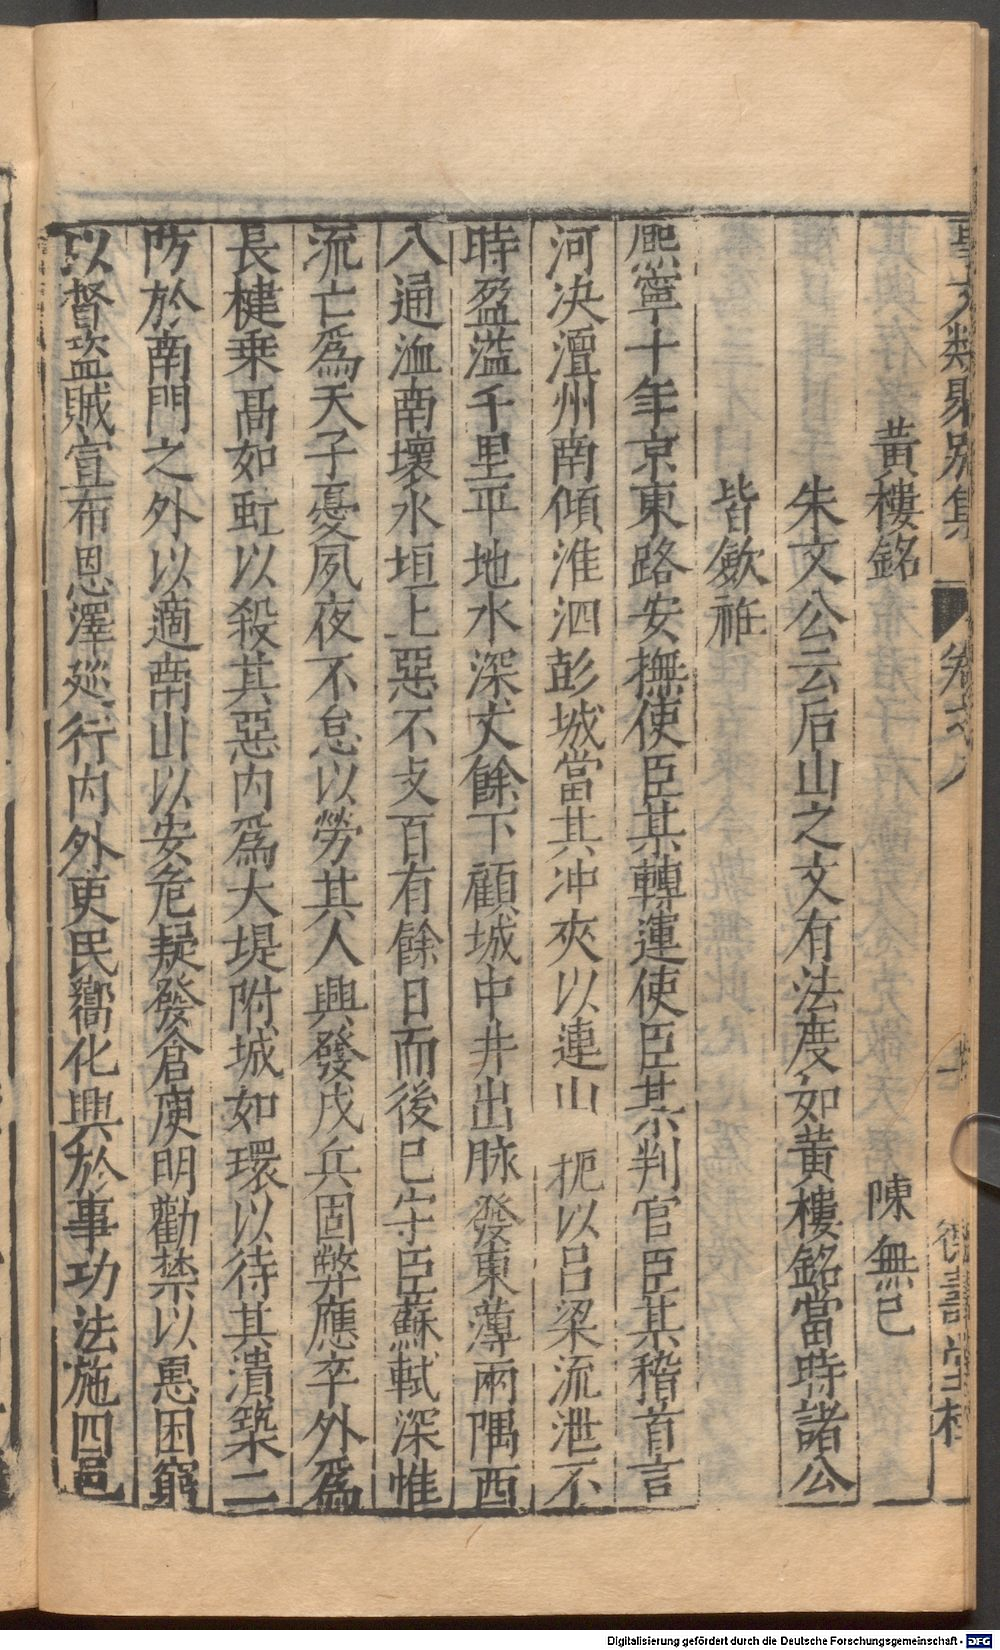 文類聚別集 卷之八 德壽堂梓
黃樓銘 陳無已
朱文公云后山之文有法度如黃樓銘當時諸公
皆歛衽
熈寧十年京東路安撫使臣某轉運使臣某判官臣某稽首言
河决澶州南傾淮泗彭城當其冲夾以連山 扼以呂梁流泄不
時盈溢千里平地水深丈餘下顧城中井出脉發東薄兩隅西
入通洫南壞水垣上惡不支百有餘日而後已守臣蘇軾深惟
流亡爲天子憂夙夜不怠以勞其人興發戍兵固弊應卒外爲
長楗乗高如虹以殺其惡内爲大堤附城如環以待其潰築二
防於南門之外以適南山以安危疑發倉庾明勸禁以惠困窮
以督盗賊宣布恩澤廵行内外吏民嚮化興於事功法施四邑
Digitalisierung gefördert durch die Deutsche Forschungsgemeinschaft - DFG